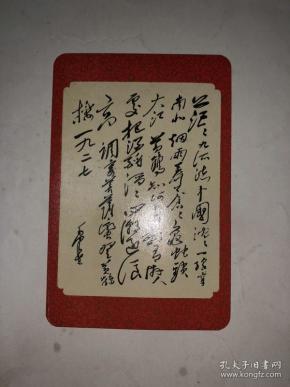 茫〻九派流中國沉〻一線穿
南北烟雨莽苍〻龜蛇鎖
大江黄鶴知何去剩有遊人
處把酒酹滔〻心潮逐浪
高调寄菩薩蛮登黄鶴
楼一九二七
毛泽东
孔夫子旧书网